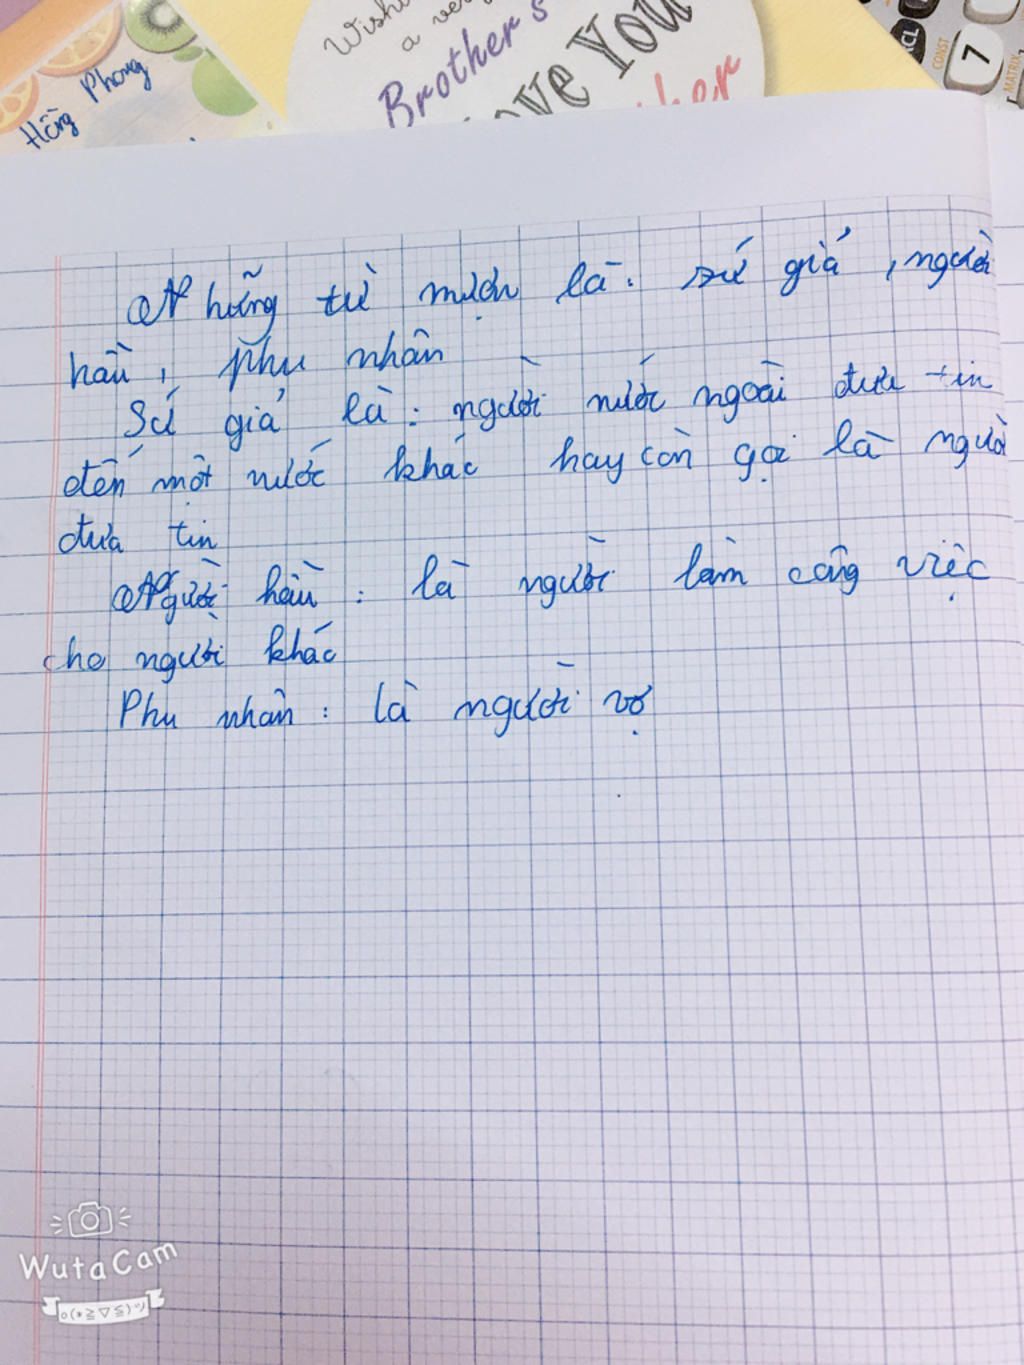 Wishi
a ver
Brother's
ove You
her
Hồng Phong
CONST
7
MATRIX
CL
Những từ mượn là: sứ giả, người
hầu, phu nhân
Sứ giả là: người nước ngoài đưa tin
đến một nước khác hay còn gọi là người
đưa tin
Người hầu: là người làm công việc
cho người khác
Phu nhân: là người vợ
WutaCam
o(*≧▽≦)ツ